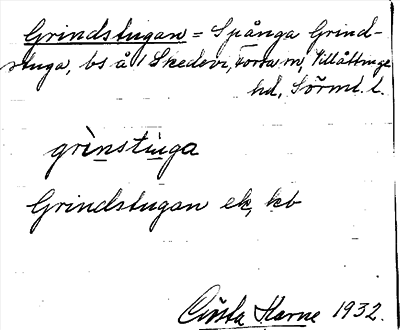 Grindstugan = Spånga Grind-
stuga, bs å 1 Skedevi, Torså sn, Villåttinge
hd, Sörml. l.
grìnstu̲ga
Grindstugan ek, kb
Gösta Karne 1932.